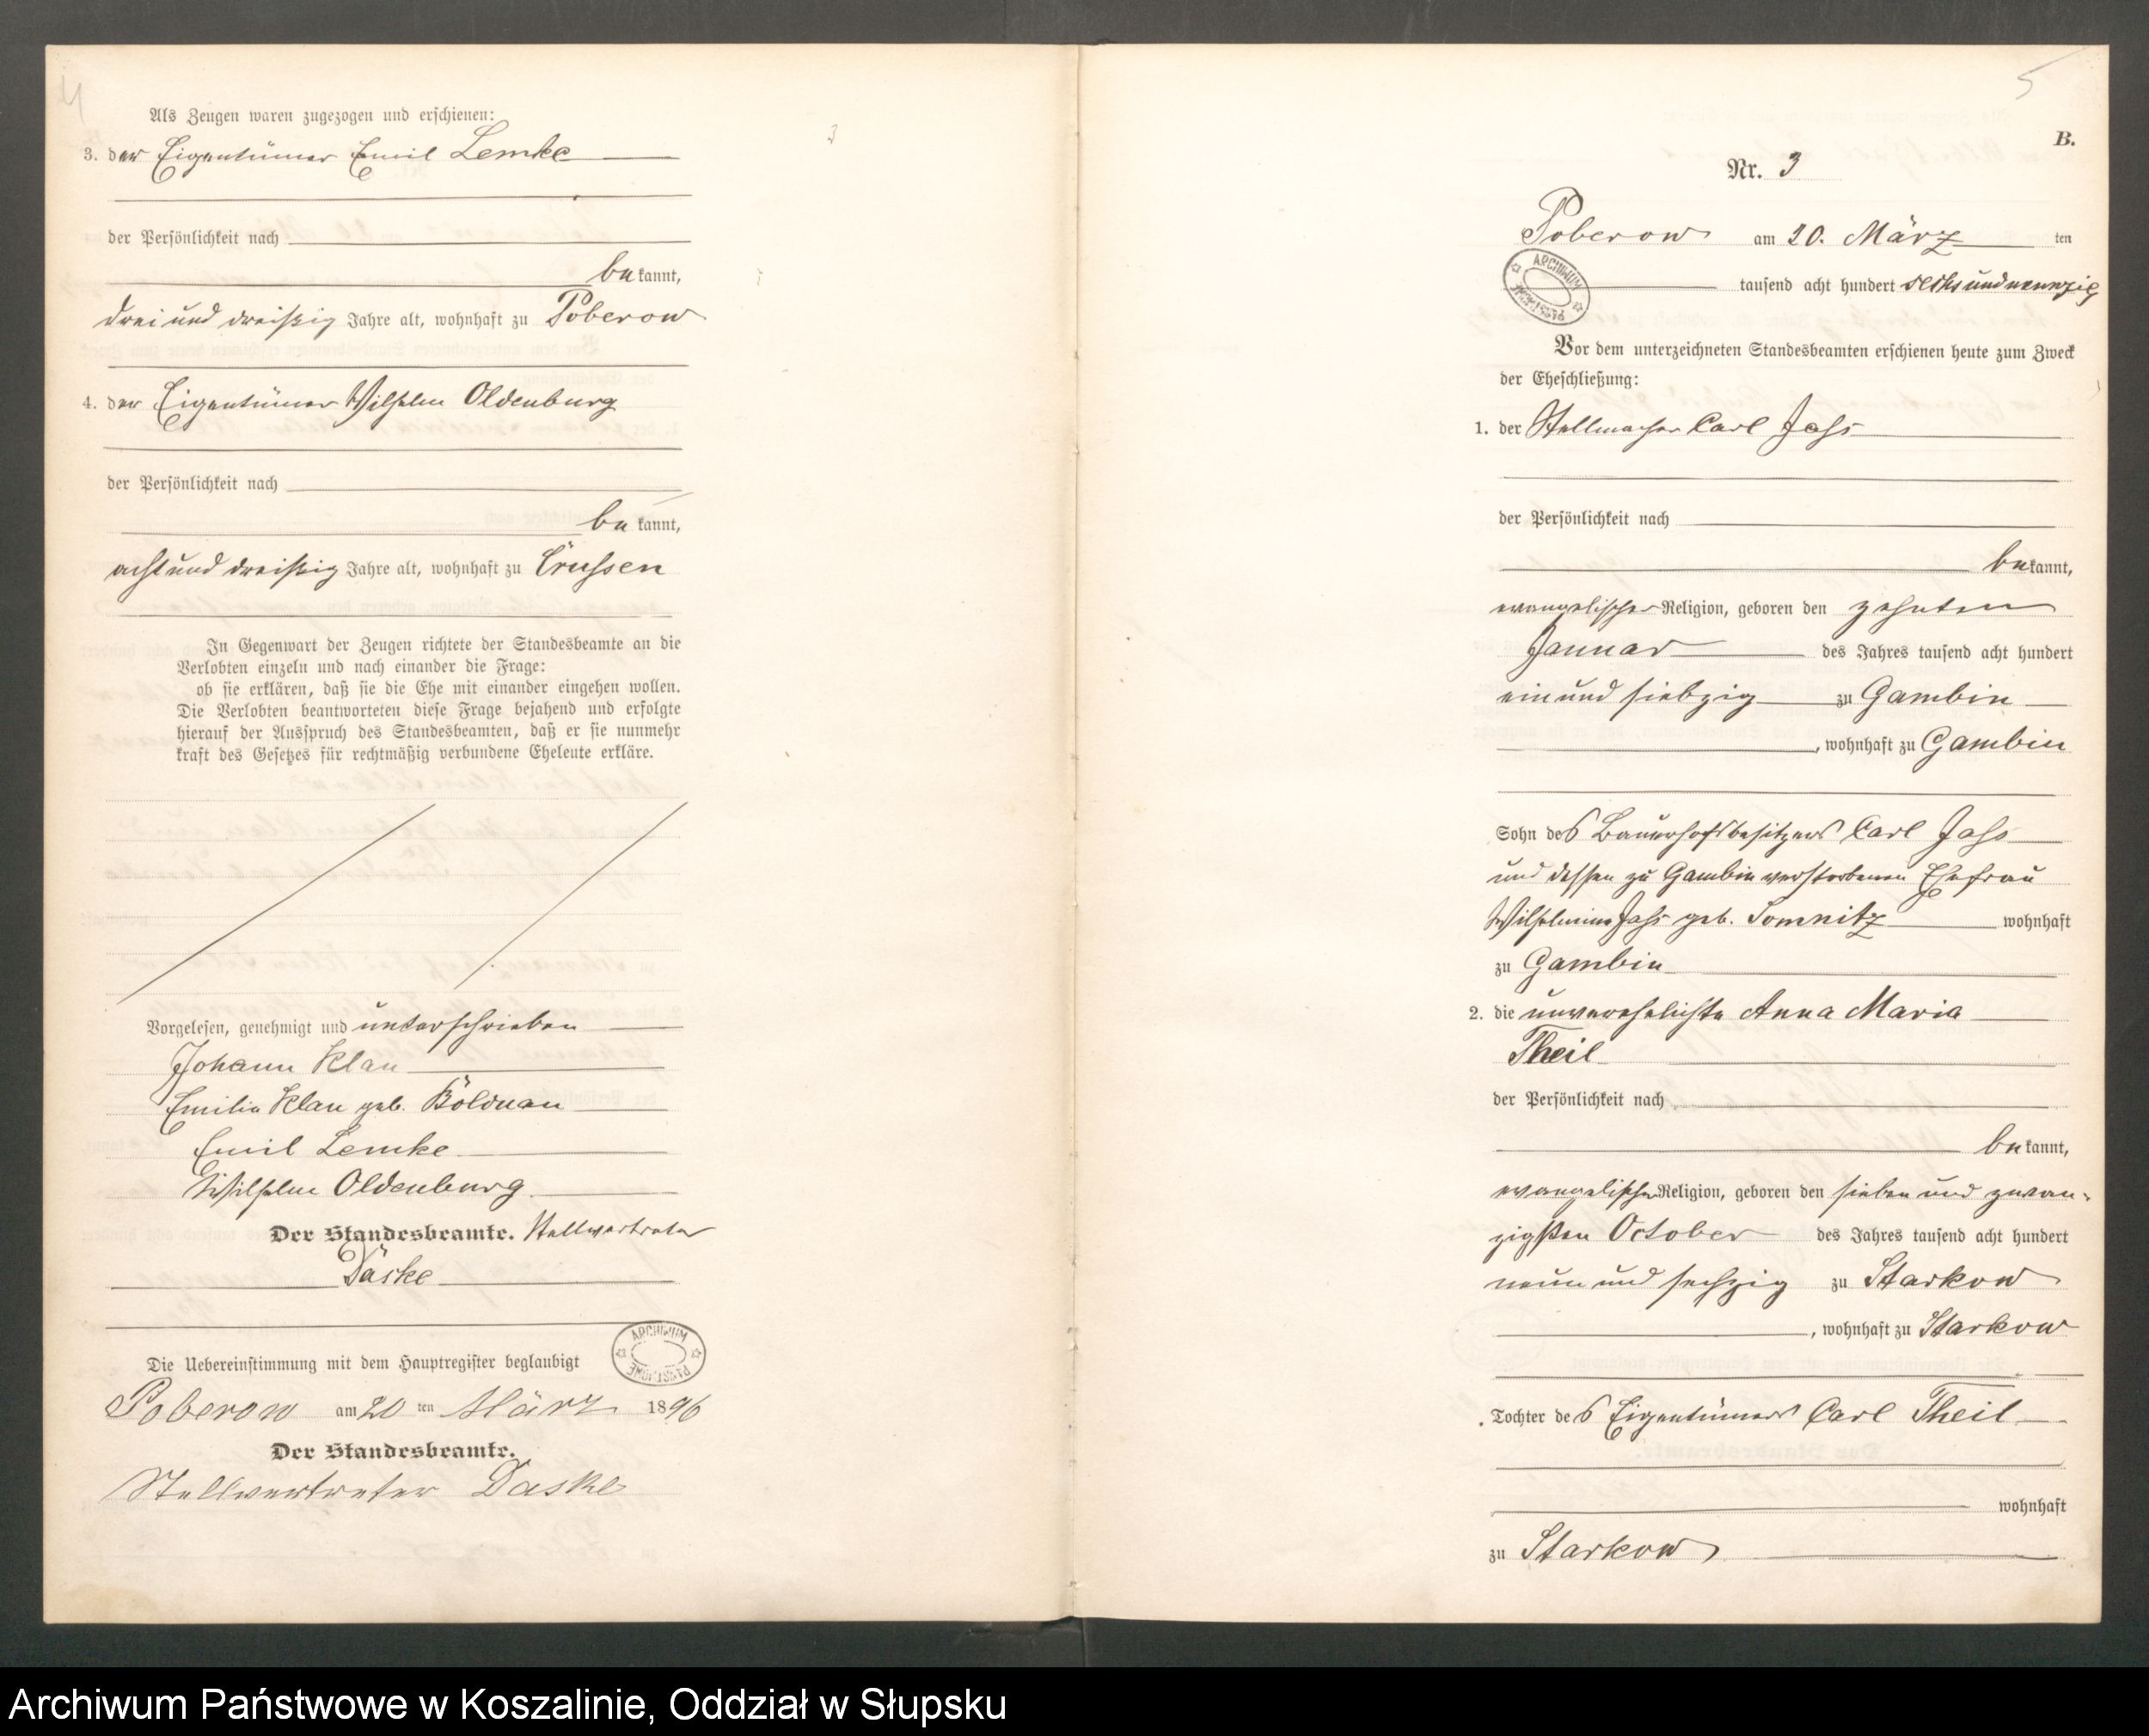 4
Als Zeugen waren zugezogen und erschienen:
3. der Eigentümer Emil Lemke
der Persönlichkeit nach
bekannt,
drei und dreißig Jahre alt, wohnhaft zu Poberow
4. der Eigentümer Wilhelm Oldenburg
der Persönlichkeit nach
bekannt,
acht und dreißig Jahre alt, wohnhaft zu Crussen
In Gegenwart der Zeugen richtete der Standesbeamte an die
Verlobten einzeln und nach einander die Frage:
ob sie erklären, daß sie die Ehe mit einander eingehen wollen.
Die Verlobten beantworteten diese Frage bejahend und erfolgte
hierauf der Ausspruch des Standesbeamten, daß er sie nunmehr
kraft des Gesetzes für rechtmäßig verbundene Eheleute erkläre.
Vorgelesen, genehmigt und unterschrieben
Johann Klan
Emilie Klan geb. Böldnan
Emil Lemke
Wilhelm Oldenburg
Der Standesbeamte. Stellvertreter
Daske
ARCHIWUM PAŃSTWOWE
Die Uebereinstimmung mit dem Hauptregister beglaubigt
Poberow am 20 ten März 1896
Der Standesbeamte.
Stellvertreter Daske
3
5
B.
Nr. 3
Poberow am 20. März ten
ARCHIWUM PAŃSTWOWE
tausend acht hundert sechs und neunzig
Vor dem unterzeichneten Standesbeamten erschienen heute zum Zweck
der Eheschließung:
1. der Stellmacher Carl Jahs
der Persönlichkeit nach
bekannt,
evangelischer Religion, geboren den zehnten
Januar des Jahres tausend acht hundert
ein und siebzig zu Gambin
, wohnhaft zu Gambin
Sohn des Bauerhofsbesitzers Carl Jahs
und dessen zu Gambin verstorbenen Ehefrau
Wilhelmine Jahs geb. Somnitz wohnhaft
zu Gambin
2. die unverehelichte Anna Maria
Theil
der Persönlichkeit nach
bekannt,
evangelischer Religion, geboren den sieben und zwan-
zigsten October des Jahres tausend acht hundert
neun und sechzig zu Starkow
, wohnhaft zu Starkow
Tochter des Eigentümers Carl Theil
wohnhaft
zu Starkow
Archiwum Państwowe w Koszalinie, Oddział w Słupsku